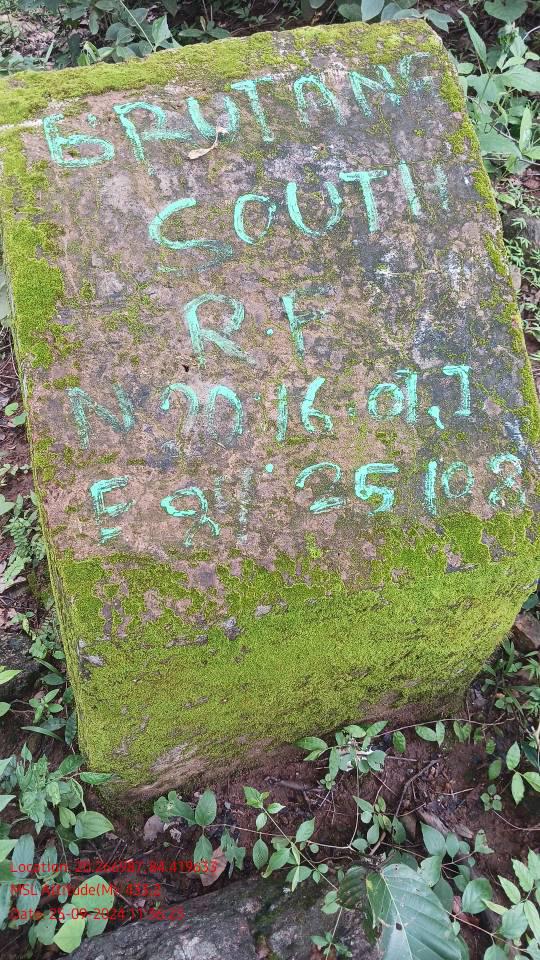 BRUTANG
SOUTH
R.F
N 20°16.01,1
E 84° 25 10 8
Location: 20.266987,84.419633
MSL Altitude(M): 433.2
Date: 25-09-2024 11:56:25